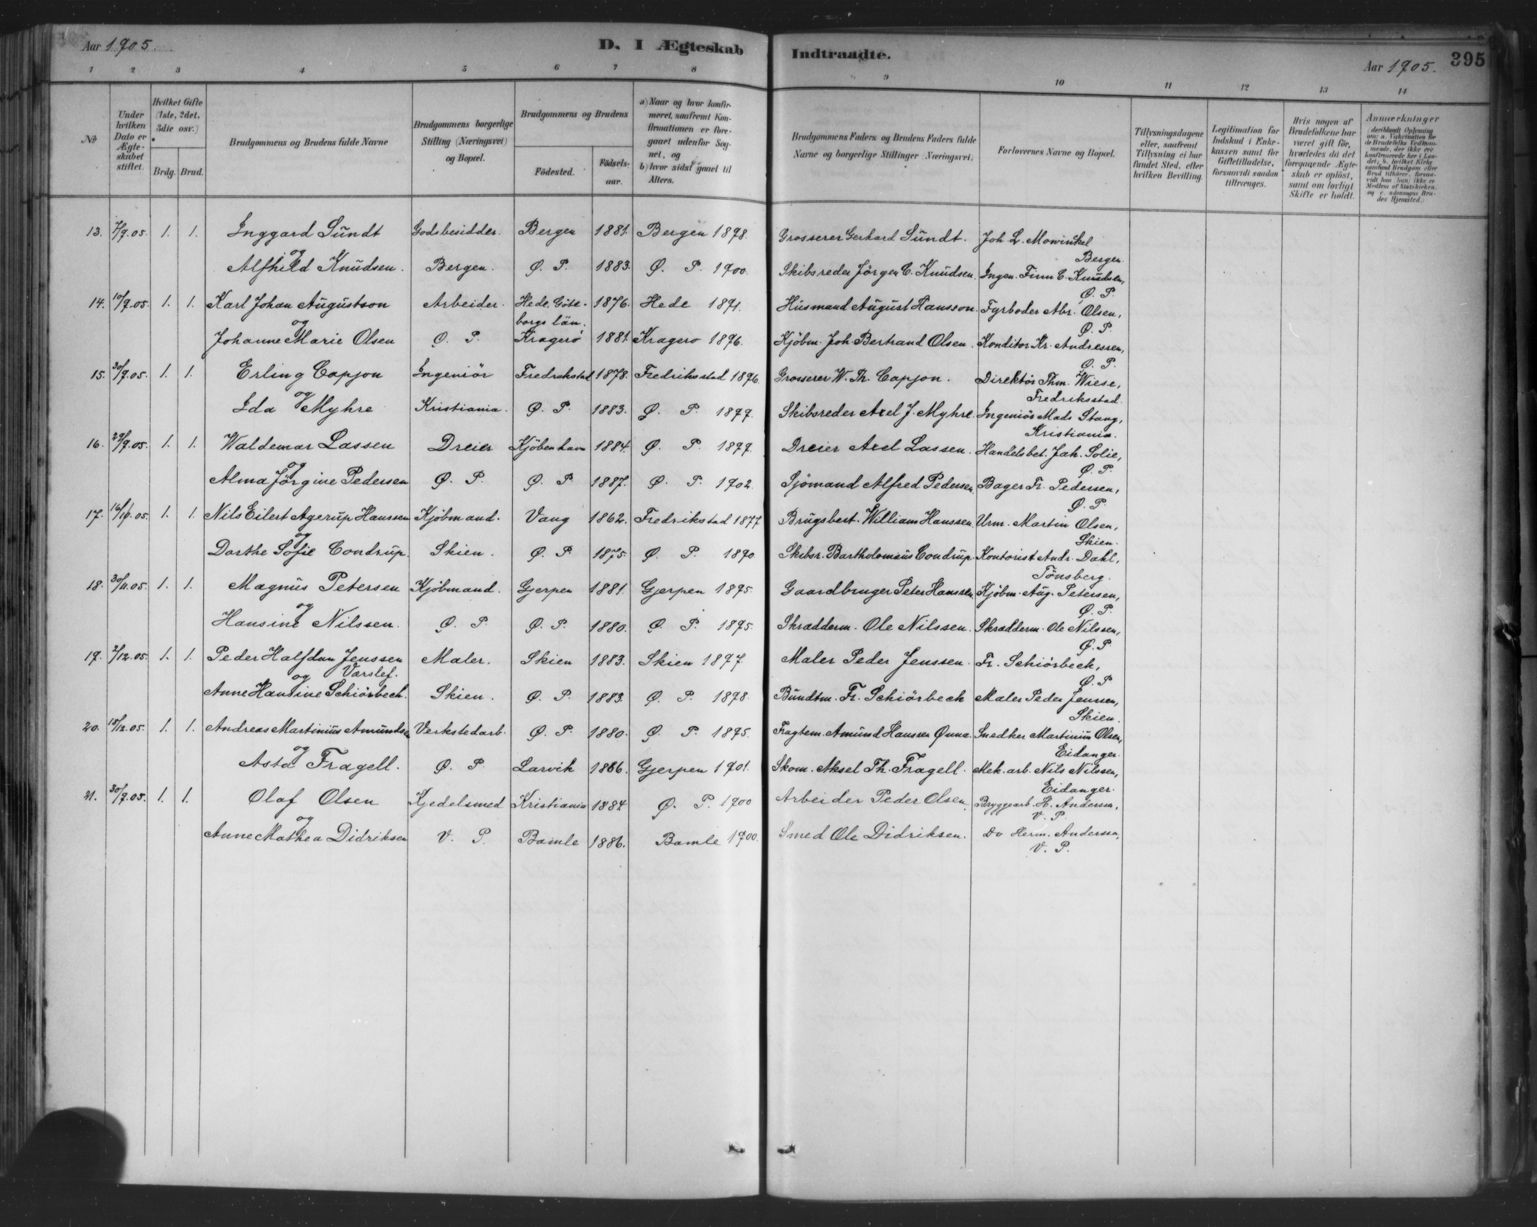 Aar 1905.
D. I Ægteskab Indtraadte.
Aar 1905. 395
1 2 3 4 5 6 7 8 9 10 11 12 13 14
No
Under hvilken Dato er Ægteskabet stiftet.
Hvilket Gifte (1ste, 2det, 3die osv.)
Brdg. Brud.
Brudgommens og Brudens fulde Navne
Brudgommens borgerlige Stilling (Næringsvei) og Bopæl.
Brudgommens og Brudens
Födested. Födsels-aar.
a) Naar og hvor konfirmeret, saafremt Konfirmationen er foregaaet udenfor Sognet, og
b) hvor sidst gaaet til Alters.
Brudgommens Faders og Brudens Faders fulde Navne og borgerlige Stillinger (Næringsvei).
Forlovernes Navne og Bopæl.
Tillysningsdagene eller, saafremt Tillysning ei har fundet Sted, efter hvilken Bevilling.
Legitimation for Indskud i Enkekassen samt for Giftetilladelse, forsaavidt saadan tiltrænges.
Hvis nogen af Brudefolkene har været gift før, hvorledes da det foregaaende Ægteskab er oplöst, samt om lovligt Skifte er holdt.
Anmærkninger
13. 7/9.05. 1. 1. Inggard Sundt Godsbesidder. Bergen 1881. Bergen 1898. Grosserer Gerhard Sundt. Joh L. Mowinkel
og Bergen
Alfhild Knudsen. Bergen. Ø. P. 1883. Ø. P. 1900. Skibsreder Jörgen C. Knudsen, Ingen. Finn C. Knudsen,
Ø. P.
14. 17/9.05. 1. 1. Karl Johan Augustson Arbeider. Hede, Göte- 1876. Hede 1891. Husmand August Hansson. Fyrböder Abr. Olsen,
og borgs län. Ø. P.
Johanne Marie Olsen Ø. P. Kragerö 1881. Kragerø 1896. Kjøbm. Joh Bertrand Olsen. Konditor Kr. Andressen,
Ø. P.
15. 30/9.05. 1. 1. Erling Capjon Ingeniör Fredrikstad 1878. Fredriksstad 1896. Grosserer W. Th. Capjon. Direktör Thm. Wiese,
og Fredriksstad
Ida Myhre Kristiania. Ø. P. 1883. Ø. P. 1899. Skibsreder Axel J. Myhre. Ingeniör Mads Stang,
Kristiania.
16. 29/9.05. 1. 1. Waldemar Lassen Dreier Kjöbenhavn 1884. Ø. P. 1899. Dreier Axel Lassen. Handelsbet. Jah. Solie,
og Ø. P.
Alma Jørgine Pedersen Ø. P. Ø. P. 1887. Ø. P. 1902. Sjömand Alfred Pedersen, Bager Fr. Pedersen,
Ø. P.
17. 14/10.05. 1. 1. Nils Eilert Agerup Hanssen Kjöbmand. Vang 1862. Fredrikstad 1877 Brugsbest. William Hanssen Urm. Martin Olsen,
og Skien.
Dorthe Sofie Condrup. Skien. Ø. P 1875. Ø. P. 1890. Skibsr. Bartholomæus Condrup Kontorist Andr. Dahl,
Tönsberg.
18. 30/11.05. 1. 1. Magnus Petersen Kjöbmand. Gjerpen 1881. Gjerpen 1895. Gaardbruger Peter Hanssen. Kjöbm. Aug. Petersen,
og Ø. P.
Hansine Nilssen. Ø. P. Ø. P. 1880. Ø. P. 1895. Skrædderm. Ole Nilssen. Skrædderm. Ole Nilssen,
Ø. P.
19. 2/12.05. 1. 1. Peder Halfdan Jenssen Maler. Skien 1883. Skien 1897 Maler Peder Jenssen. Fr. Schiörbeck,
og Varslef. Ø. P
Anne Hansine Schiörbech. Skien. Ø. P. 1883. Ø. P. 1898. Bundtm. Fr. Schiörbeck Maler Peder Jenssen,
Skien.
20. 15/12.05. 1. 1. Andreas Martinius Amundsen Verkstedarb. Ø. P. 1880. Ø. P. 1895. Fragtem. Amund Hansen Øvna. Snedker Martinius Olsen,
og Eidanger
Asta Fragell. Ø. P Larvik 1886. Gjerpen 1901. Skom. Aksel Th. Fragell. Mek. arb. Nils Nilssen,
Eidanger.
21. 30/9.05. 1. 1. Olaf Olsen Kjedelsmed Kristiania 1884 Ø. P. 1900 Arbeider Peder Olsen Bryggearb. H. Andersen,
og V. P.
Anne Mathea Didriksen V. P. Bamle 1886. Bamle 1900. Smed Ole Didriksen. Do Herm. Andersen,
V. P.